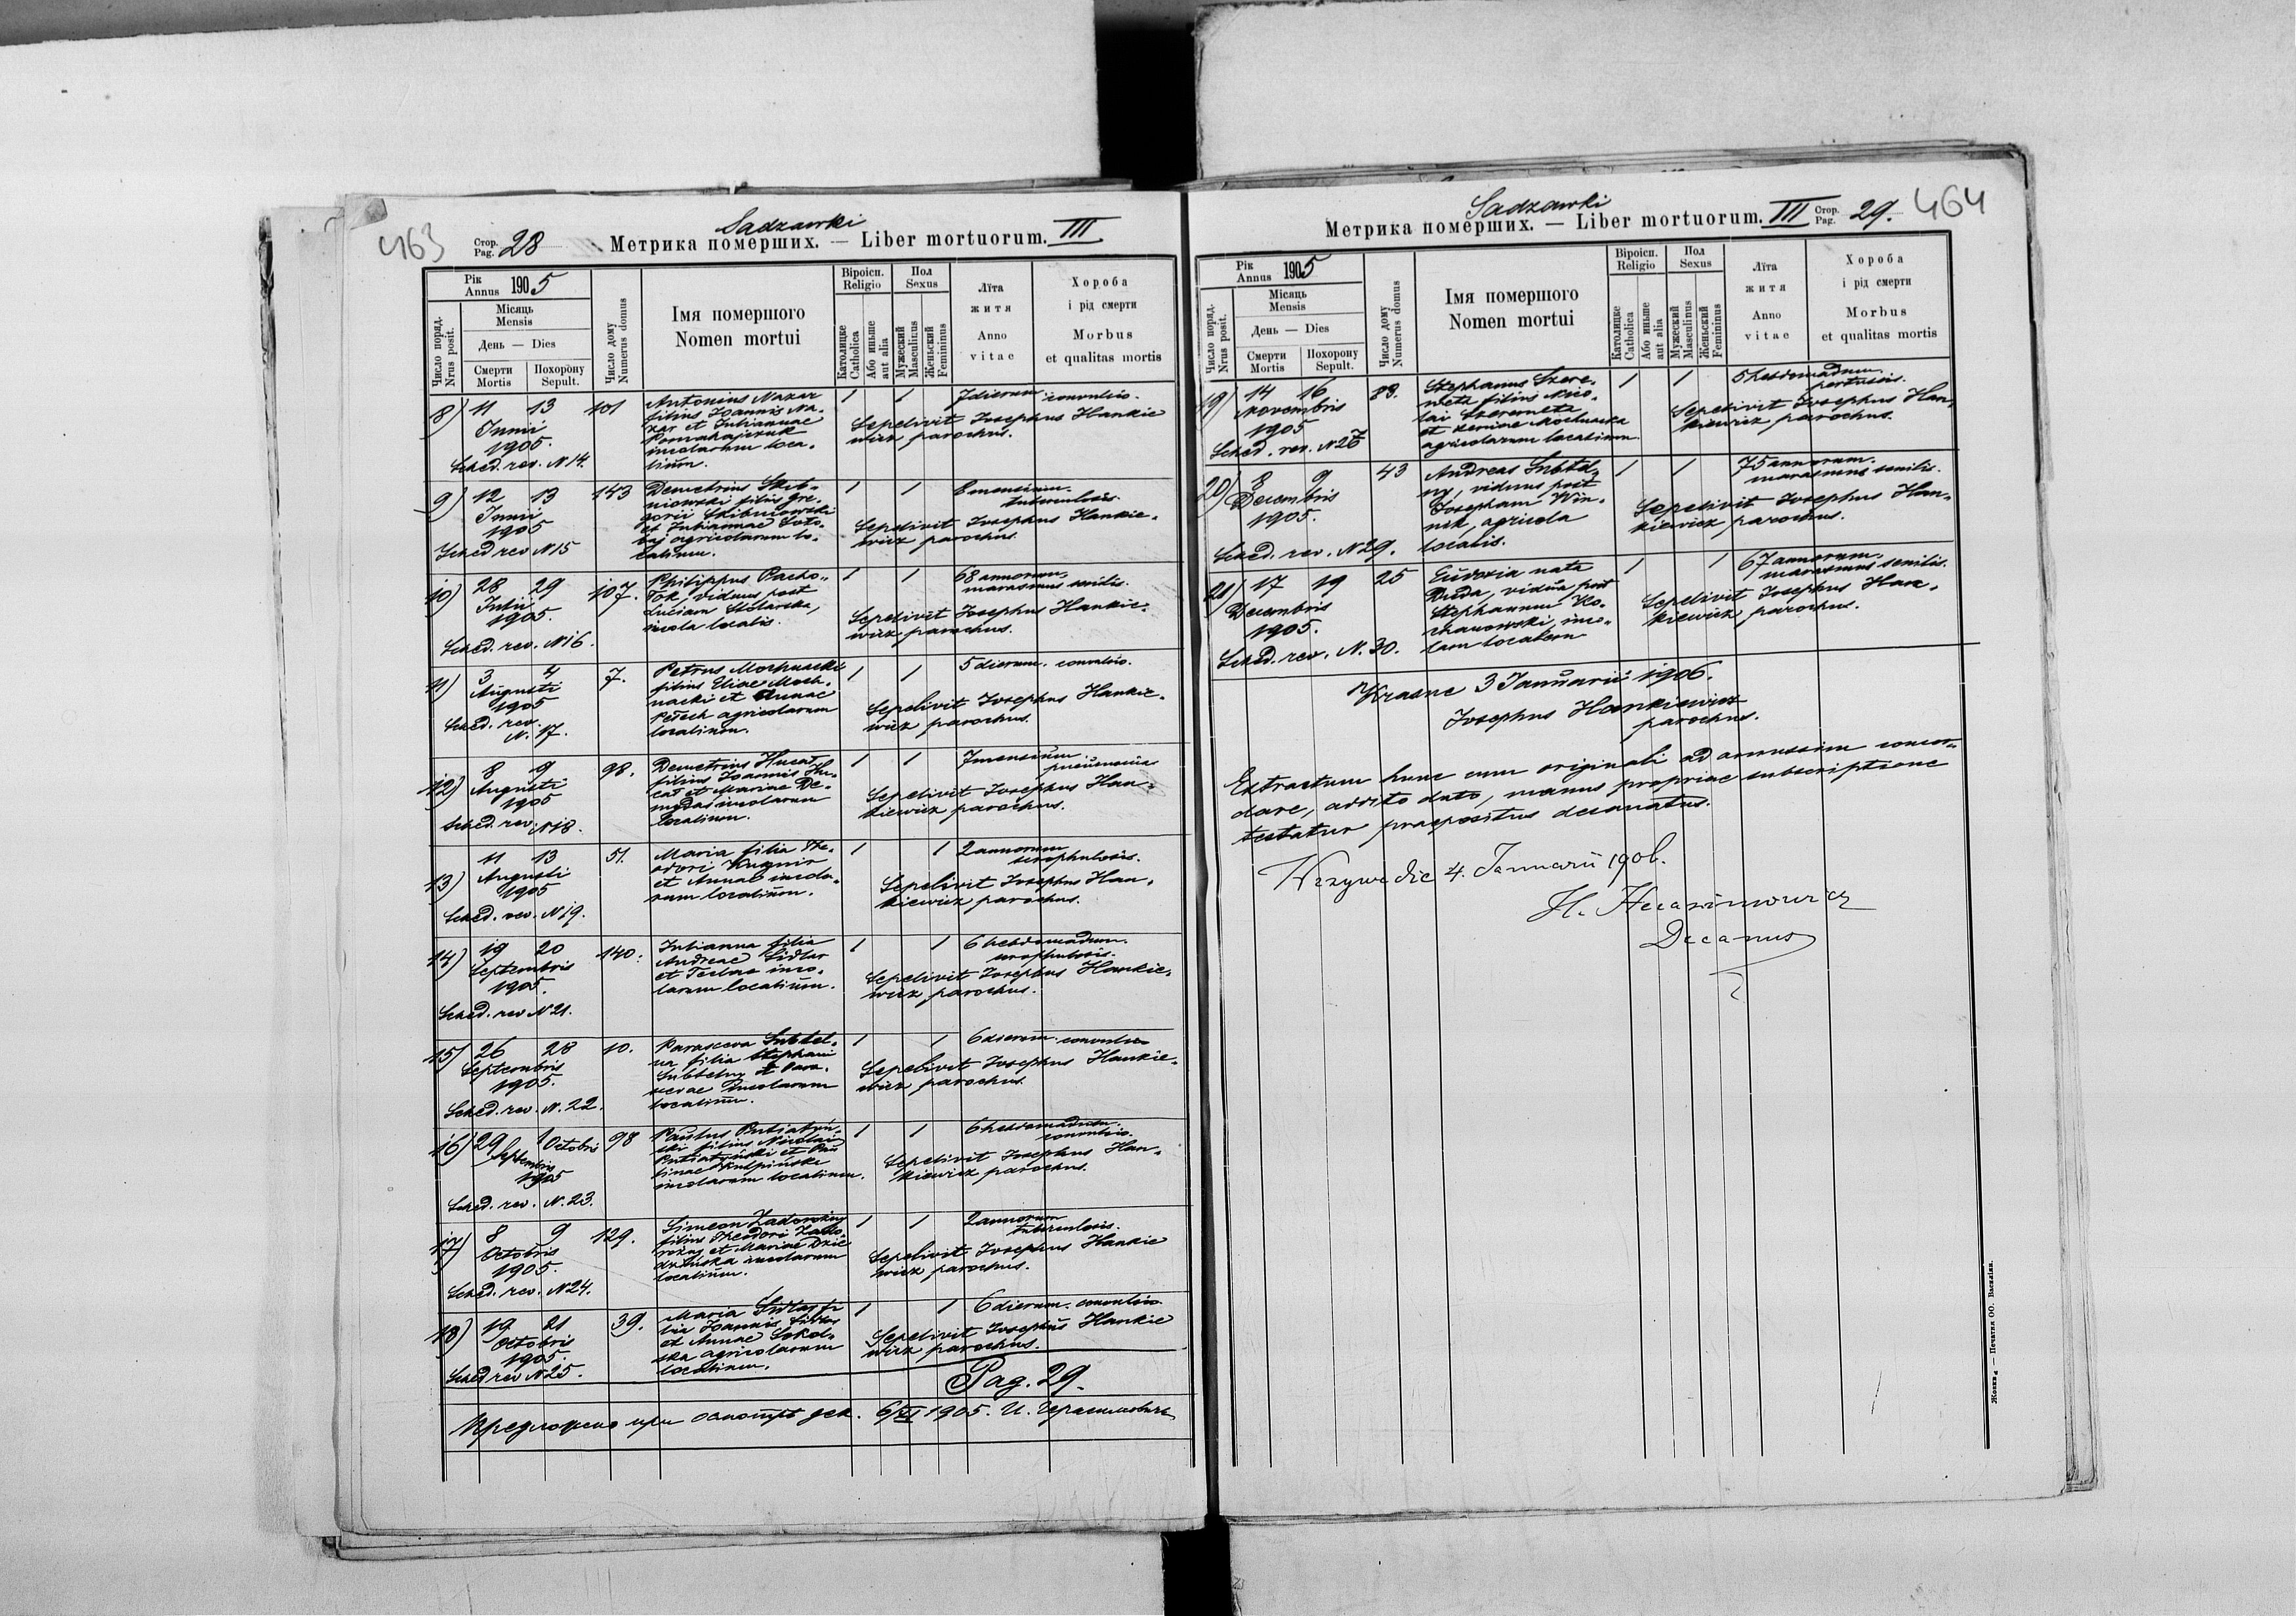 463
Стор.
Pag. 28
Sadzawki
Метрика померших. — Liber mortuorum. III
Рік
Annus 1905
Число поряд.
Nrus posit.
Місяць
Mensis
День — Dies
Смерти
Mortis
Похорону
Sepult.
Число дому
Numerus domus
Імя помершого
Nomen mortui
Віроісп.
Religio
Католицке
Catholica
Або иньше
aut alia
Пол
Sexus
Мужеский
Masculinus
Женьский
Femininus
Лїта
житя
Anno
vitae
Хороба
і рід смерти
Morbus
et qualitas mortis
8) 11 13
Junii
1905.
Sched. rev. N 14.
101
Antonius Nazar
filius Joannis Na-
zar et Juliannae
incolarum loca-
lium.
1 1 7 dierum convulsio.
Sepelivit Josephus Hankie
wicz parochus.
9) 12 13
Junii
1905
Sched rev N 15
143
Demetrius Skib-
niowski filius Gre-
gorii Skibniowski
et Juliannae Soto-
baj agricolarum lo-
calium.
1 1 8 mensium.
tuberculosis.
Sepelivit Josephus Hankie-
wicz parochus.
10) 28 29
Julii
1905.
Sched. rev. N 16.
107.
Philippus Bacho-
Tok, viduus post
Luciam Stolarska,
incola localis.
1 1 68 annorum,
marasmus senilis.
Sepelivit Josephus Hankie-
wicz parochus.
11) 3 4
Augusti
1905
Sched. rev.
N. 17.
7.
Petrus Mochnacki
filius Eliae Moch-
nacki et Annae
Petech agricolarum
localium.
1 1 5 dierum. convulsio.
Sepelivit Josephus Hankie-
wicz parochus.
12) 8 9
Augusti
1905
Sched. rev. N 18.
98.
Demetrius Hucał
filius Joannis Hu-
cał et Mariae De-
mydas incolarum
localium.
1 1 7 mensium.
pneumonia
Sepelivit Josephus Han-
kiewicz parochus.
13) 11 13
Augusti
1905
Sched. rev. N 19.
51.
Maria filia The-
odori Kusznir
et Annae incola-
rum localium.
1 1 2 annorum
scrophulosis.
Sepelivit Josephus Han-
kiewicz parochus.
14) 19 20
Septembris
1905.
Sched. rev N 21.
140.
Julianna filia
Andreae Sidlar
et Teclae inco-
larum localium.
1 1 6 hebdomadum.
scrophulosis.
Sepelivit Josephus Hankie-
wicz parochus.
15) 26 28
Septembris
1905.
Sched. rev. N. 22.
10.
Parasceva Subtel-
na filia Stephani
Subtelny et Para-
scevae incolarum
localium.
1 1 6 dierum convulsio
Sepelivit Josephus Hankie-
wicz parochus.
16) 29 1 Octobris
Septembris
1905
Sched. rev. N. 23.
98
Paulus Putiatyń-
ski filius Nicolai
Putiatyński et Pau
linae Kulpińska
incolarum localium.
1 1 6 hebdomadum.
convulsio.
Sepelivit Josephus Han-
kiewicz parochus.
17) 8 9
Octobris
1905.
Sched. rev. N 24.
129.
Simeon Zadorożny
filius Theodori Zado-
rożny et Mariae
incolarum
localium.
1 1 2 annorum
tuberculosis.
Sepelivit Josephus Hankie
wicz parochus.
18) 19 21
Octobris
1905.
Sched rev N 25.
39.
Maria Sidlar fi
lia Joannis Sidlar
et Annae Sokol-
ska agricolarum
localium.
1 1 6 dierum. convulsio.
Sepelivit Josephus Hankie
wicz parochus.
Pag. 29.
Предложено при осмотрѣ дек. 6/XI 1905. И. Герасимовичъ
Sadzawki
464
Метрика померших. — Liber mortuorum. III Стор.
Pag. 29.
Рік
Annus 1905
Число поряд.
Nrus posit.
Місяць
Mensis
День — Dies
Смерти
Mortis
Похорону
Sepult.
Число дому
Numerus domus
Імя помершого
Nomen mortui
Віроісп.
Religio
Католицке
Catholica
Або иньше
aut alia
Пол
Sexus
Мужеский
Masculinus
Женьский
Femininus
Лїта
житя
Anno
vitae
Хороба
і рід смерти
Morbus
et qualitas mortis
19) 14 16
Novembris
1905
Sched. rev. N 26
88.
Stephanus Szere-
meta filius Nico-
lai Szeremeta
et Xeniae Mochnacka
agricolarum localium
1 1 5 hebdomadum.
pertussis.
Sepelivit Josephus Han-
kiewicz parochus.
20) 8 9
Decembris
1905.
Sched. rev. N 29.
43
Andreas Subtel-
ny, viduus post
Josepham Win-
nik, agricola
localis.
1 1 75 annorum.
marasmus senilis.
Sepelivit Josephus Han-
kiewicz parochus.
21) 17 19
Decembris
1905.
Sched. rev. N. 30.
25
Eudoxia nata
Duda, vidua post
Stephanum Ko-
chanowski, inco-
lam localem
1 1 67 annorum.
marasmus senilis.
Sepelivit Josephus Han-
kiewicz parochus.
Krasne 3 Januarii 1906.
Josephus Hankiewicz
parochus.
Extractum hunc cum originali ad amussim concor-
dare, addito dato, manus propriae subscriptione
testatur praepositus decanatus.
die 4. Januarii 1906.
Decanus
Жовква — Печатня ОО. Василіян.